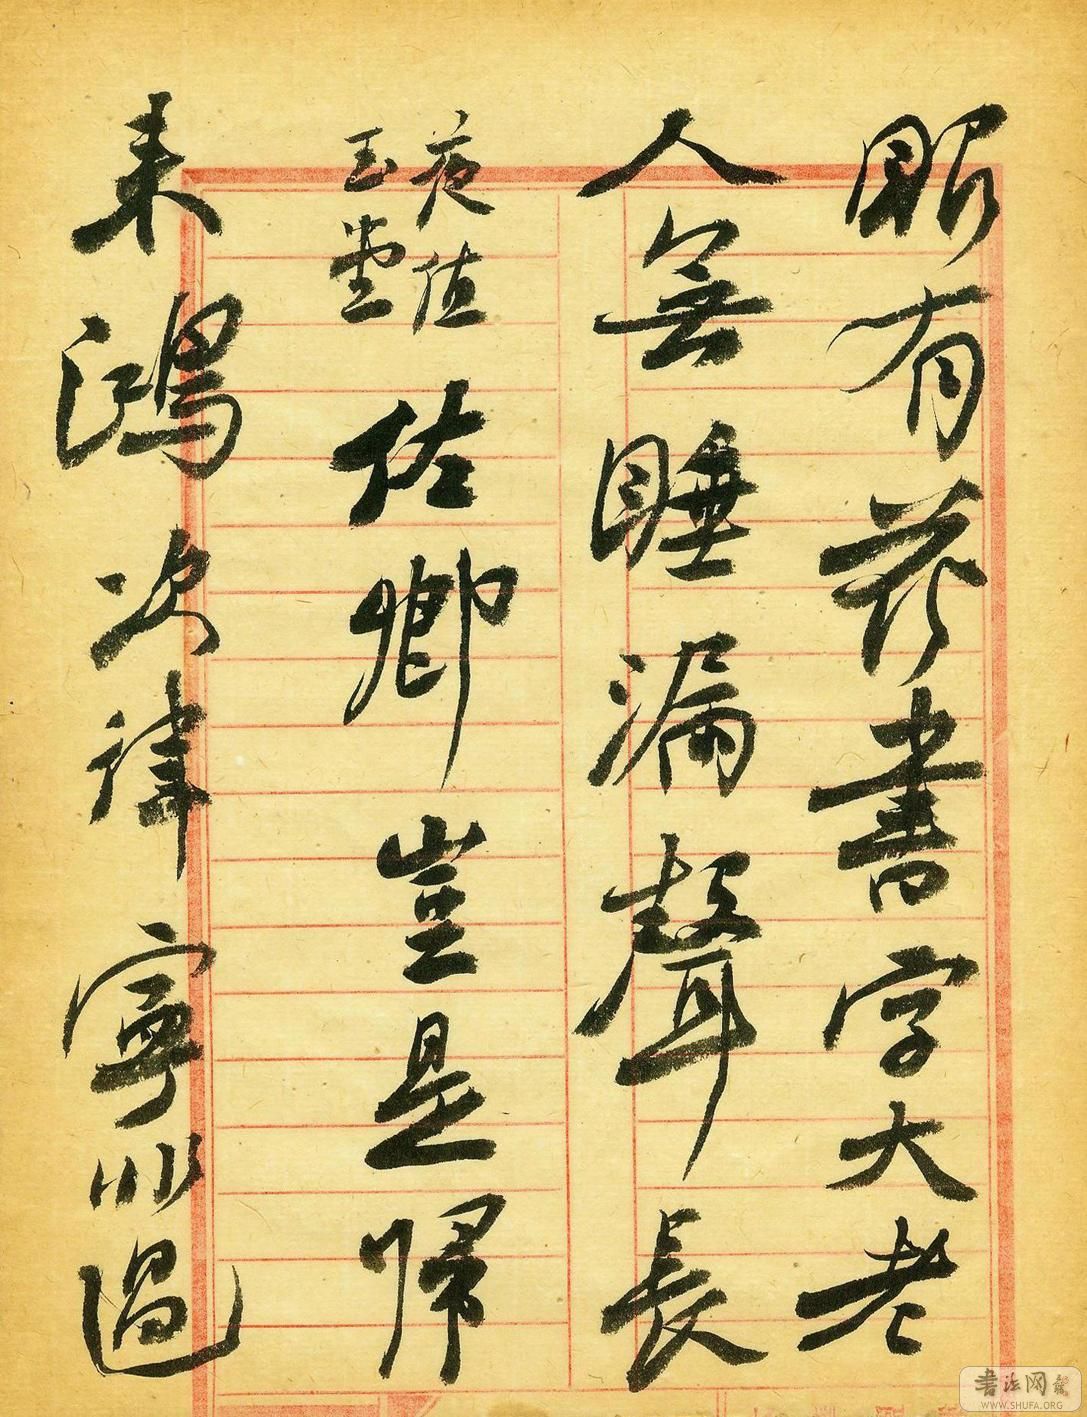 眼有花書字大老
人無睡漏聲長
夜值
玉堂
佐卿豈是歸
来鶴次律寧非過
書法网
WWW.SHUFA.ORG